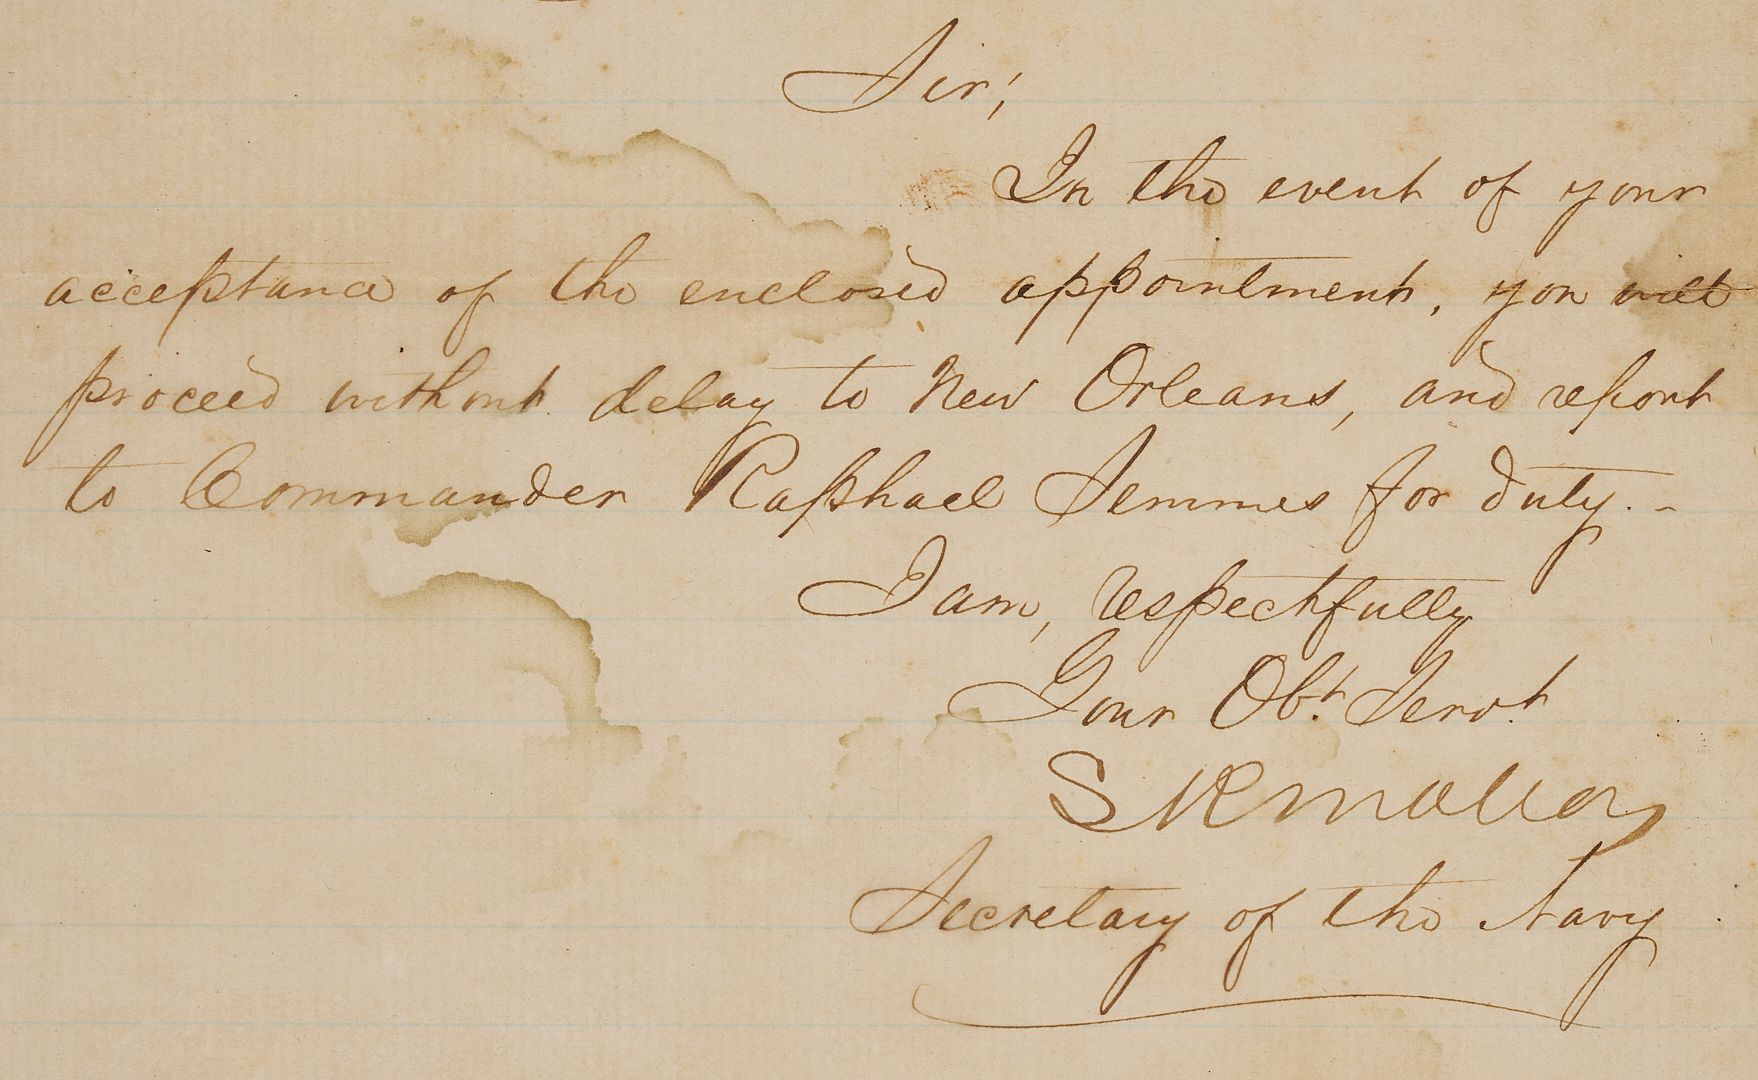 Sir;
In the event of your
acceptance of the enclosed appointment, you will
proceed without delay to New Orleans, and report
to Commander Raphael Semmes for duty.-
I am, respectfully
Your Obt. Servt.
S R Mallory
Secretary of the Navy